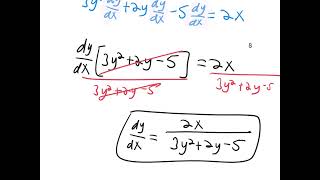 3y² dy/dx + 2y dy/dx - 5 dy/dx = 2x
8
dy/dx [3y² + 2y - 5] = 2x
3y² + 2y - 5 3y² + 2y - 5
dy/dx = 2x / 3y² + 2y - 5